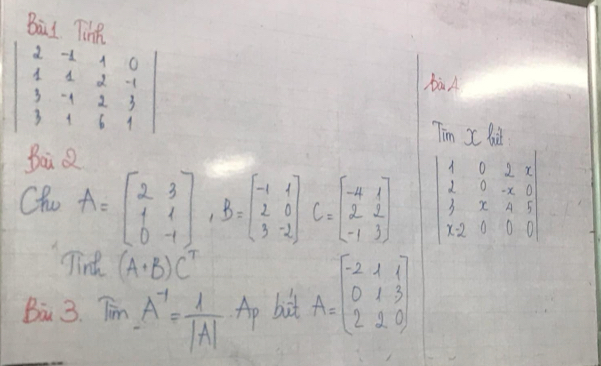 Bài 1. Tính
| 2 -1 1 0 |
| 1 1 2 -1 |
| 3 -1 2 3 |
| 3 1 6 1 |
Bài 2
Cho A = [ 2 3 ; 1 1 ; 0 -1 ] , B = [ -1 1 ; 2 0 ; 3 -2 ] C = [ -4 1 ; 2 2 ; -1 3 ]
Tính (A+B)C^T
Bài 3. Tìm A^-1 = 1/|A| . Ap biết A = [ -2 1 1 ; 0 1 3 ; 2 2 0 ]
Bài 4
Tìm x biết
| 1 0 2 x |
| 2 0 -x 0 |
| 3 x 4 5 |
| x-2 0 0 0 |